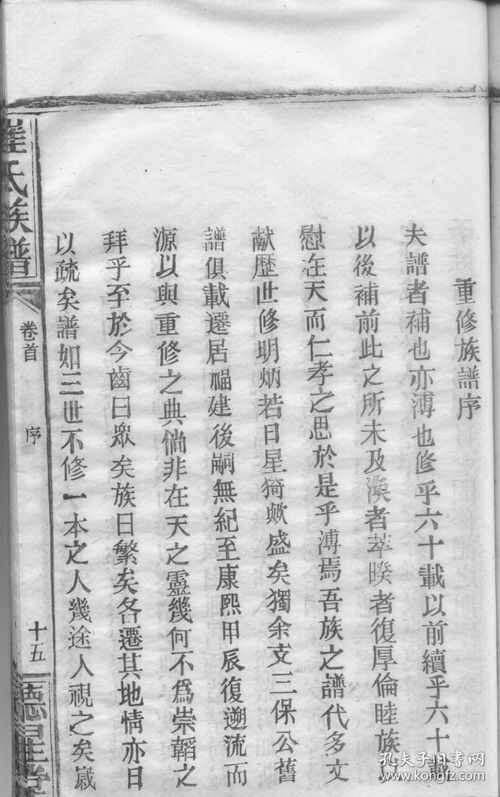 重修族譜序
夫譜者補也亦溥也修乎六十載以前續乎六十載
以後補前此之所未及渙者萃暌者復厚倫睦族以
慰在天而仁孝之思於是乎溥焉吾族之譜代多文
献歷世修明炳若日星猗歟盛矣獨余支三保公舊
譜俱載遷居福建後嗣無紀至康熙甲辰復遡流而
源以與重修之典倘非在天之靈幾何不為崇韜之
拜乎至於今齒日眾矣族日繁矣各遷其地情亦日
以疏矣譜如三世不修一本之人幾途人視之矣嵗
崔氏族譜
卷首
序
十五
德星堂
孔夫子旧书网
www.kongfz.com